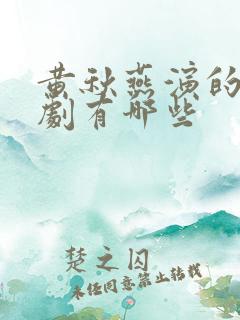 黄秋燕演的
劇有哪些
楚之囚
未任同意禁止转载